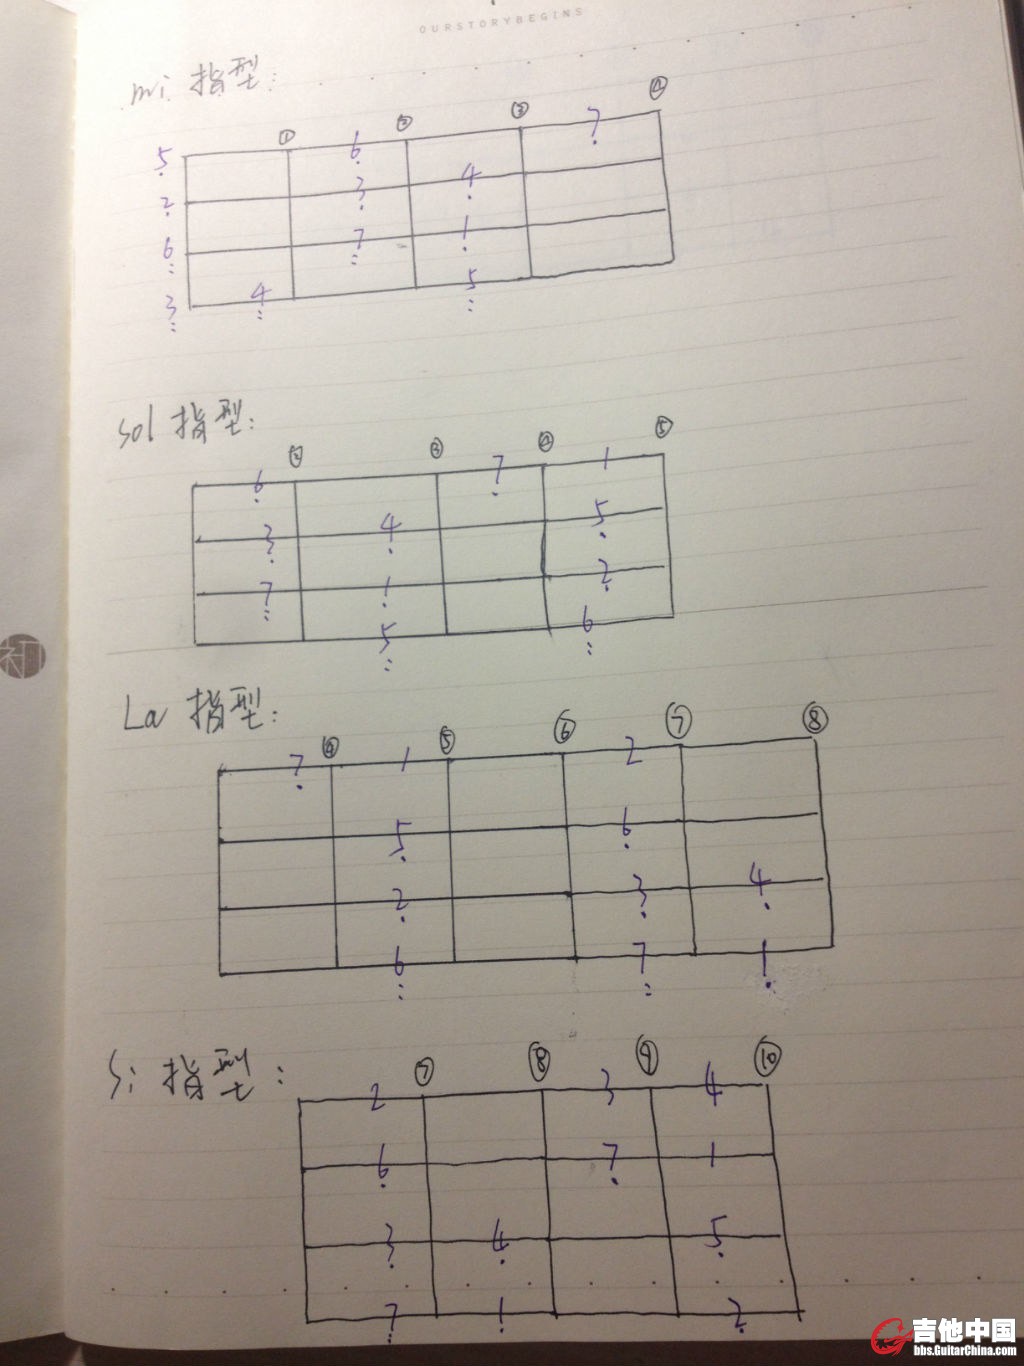 OURSTORYBEGINS
mi 指型:
① ② ③ ④
5 6 7
2 3 4
6 7 1
3 4 5
sol 指型:
② ③ ④ ⑤
6 7 1
3 4 5
7 1 2
5 6
La 指型:
④ ⑤ ⑥ ⑦ ⑧
7 1 2
5 6
2 3 4
6 7 1
Si 指型:
⑦ ⑧ ⑨ ⑩
2 3 4
6 7 1
3 4 5
7 1 2
吉他中国
bbs.GuitarChina.com